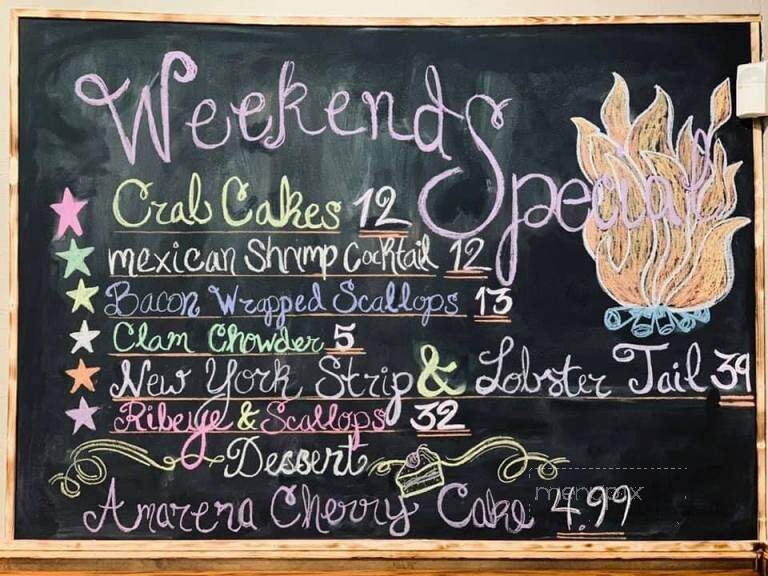 Weekend Special
Crab Cakes 12
mexican Shrimp Cocktail 12
Bacon Wrapped Scallops 13
Clam Chowder 5
New York Strip & Lobster Tail 39
Ribeye & Scallops 32
Dessert
Amarena Cherry Cake 4.99
menupix